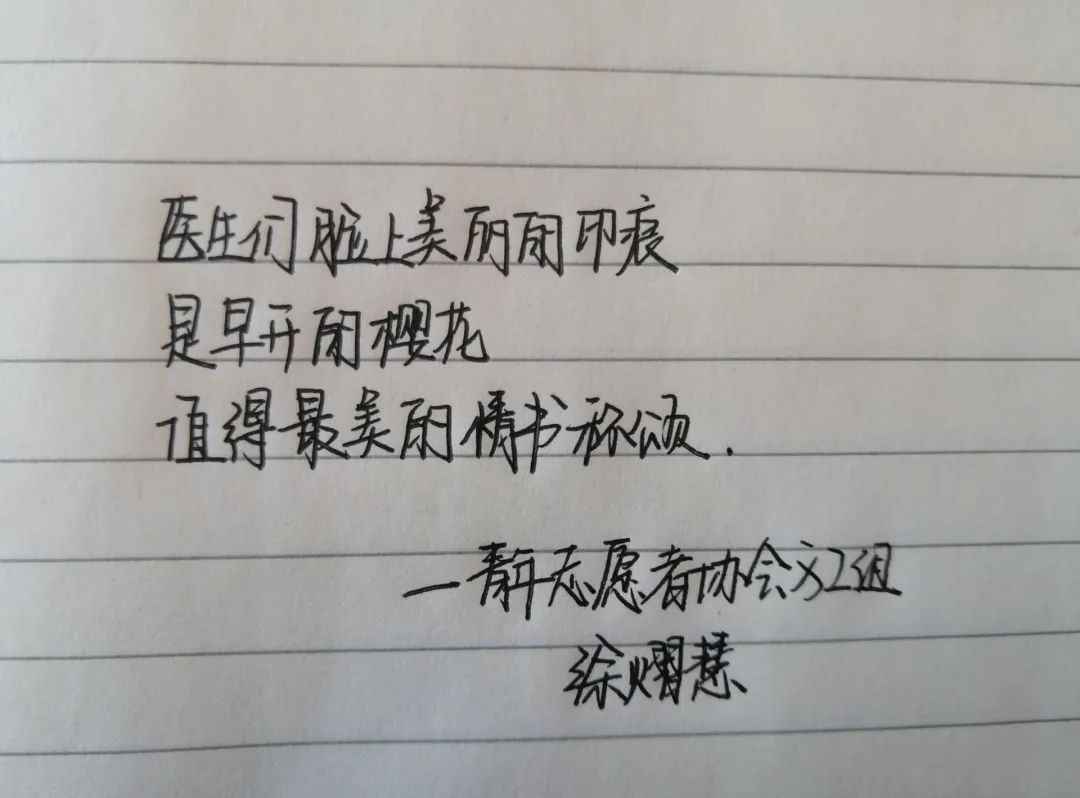 医生们脸上美丽的印痕
是早开的樱花
值得最美的情书称颂.
—青年志愿者协会文工组
徐熠慧